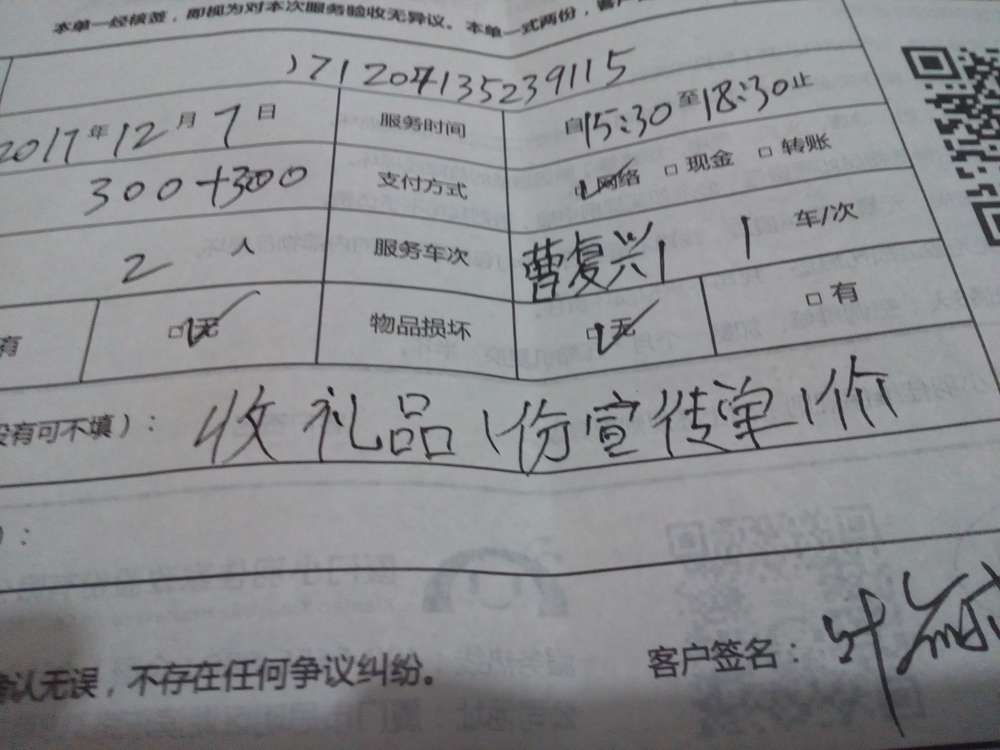 本单一经核签，即视为对本次服务验收无异议。本单一式两份，客户
)71204135239115
2017年12月7日 服务时间 自15:30至18:30止
300+300 支付方式 网络 □现金 □转账
2人 服务车次 曹复兴1 1车/次
有 □无 物品损坏 □无 □有
没有可不填）： 收礼品1份宣传单1价
）：
确认无误，不存在任何争议纠纷。 客户签名： 叶